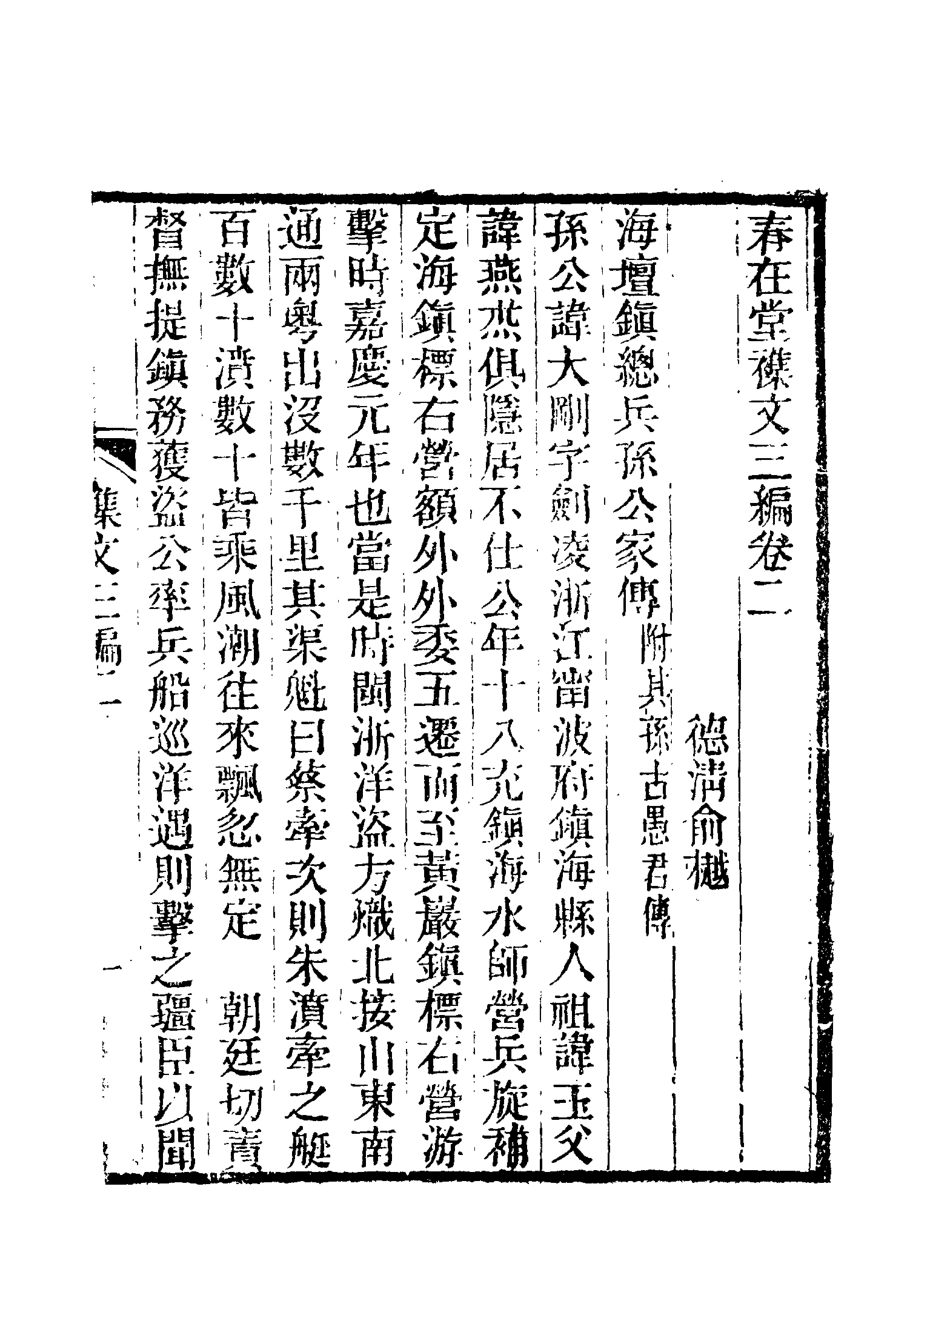 春在堂襍文三編卷二
德清俞樾
海壇鎭總兵孫公家傳附其孫古愚君傳
孫公諱大剛字劍凌浙江甯波府鎭海縣人祖諱玉父
諱燕燕俱隱居不仕公年十八充鎭海水師營兵旋補
定海鎭標右營額外外委五遷而至黃巖鎭標右營游
擊時嘉慶元年也當是時閩浙洋盜方熾北接山東南
通兩粵出沒數千里其渠魁曰蔡牽次則朱濆牽之艇
百數十濆數十皆乘風潮往來飄忽無定　朝廷切責
督撫提鎭務獲盜公率兵船巡洋遇則擊之疆臣以聞
集文三編二
一